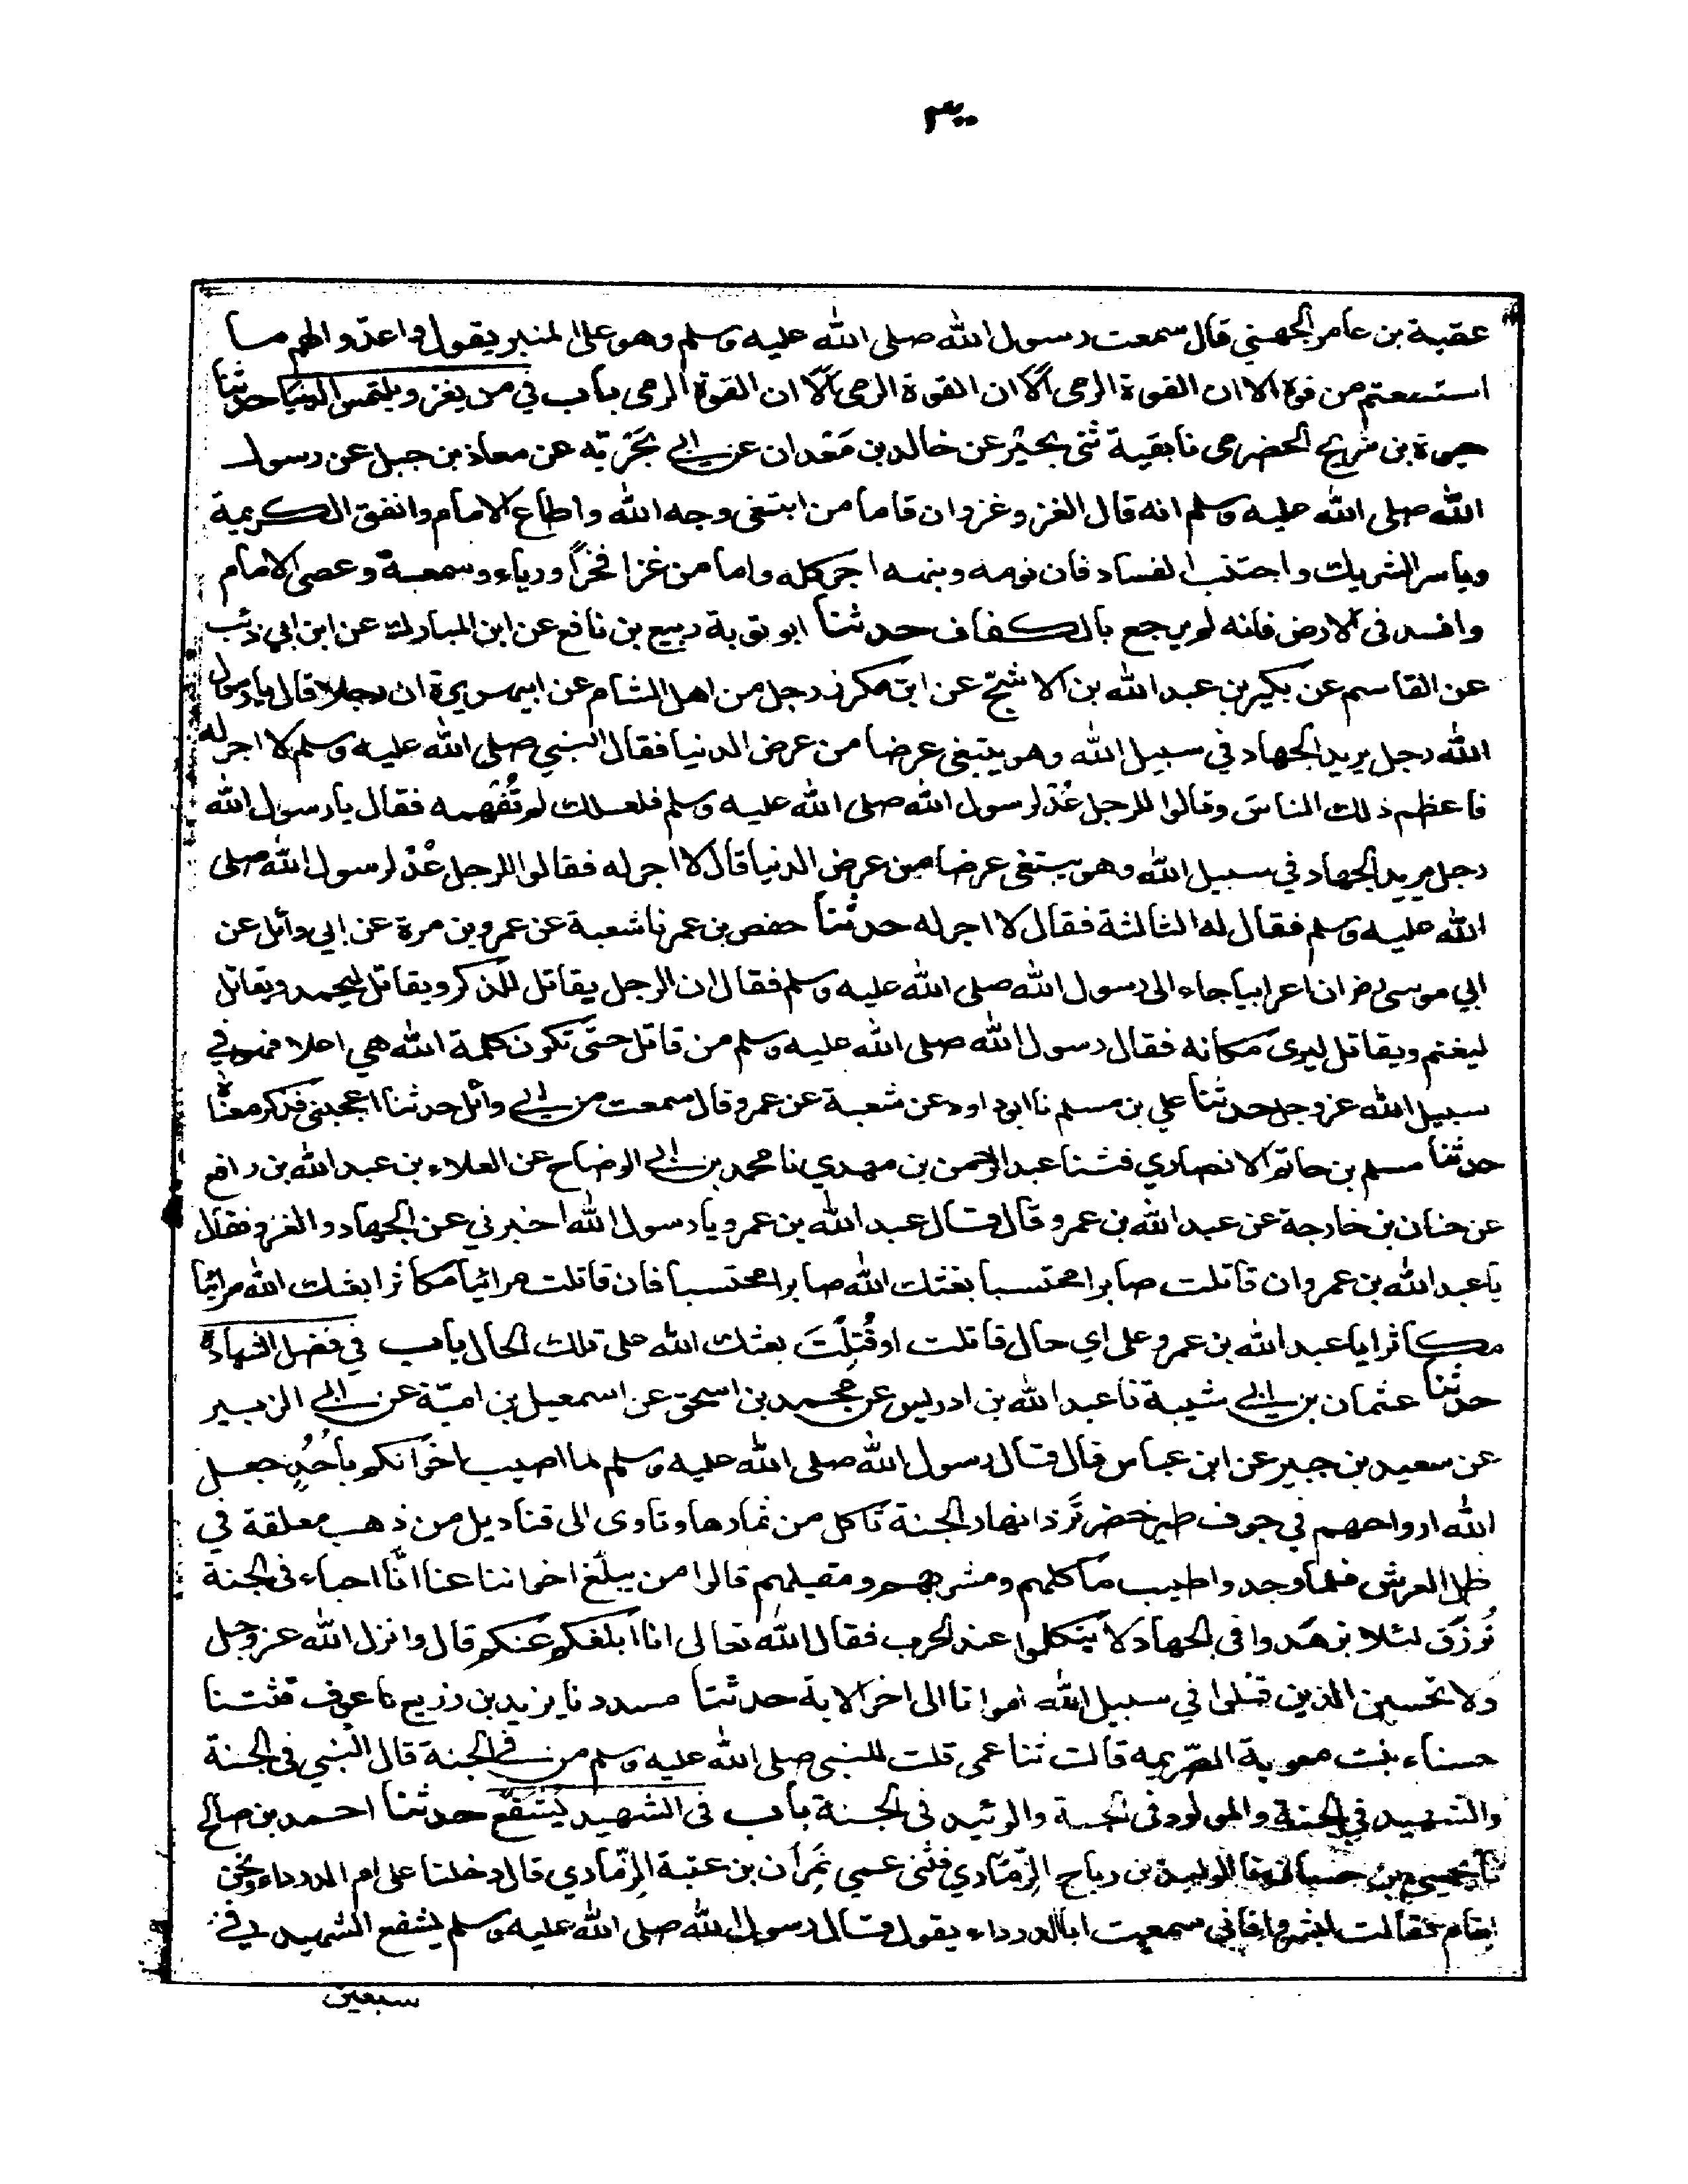 ٣٠٠
عقبة بن عامر الجهني قال سمعت رسول الله صلى الله عليه وسلم وهو على المنبر يقول واعدّوا لهم ما
استطعتم من قوة الا ان القوة الرمى ألا ان القوة الرمى ألا ان القوة الرمى باب في من يغزو ويلتمس الدنيا حدثنا
حيوة بن شريح الحضرمى نا بقية ثنى بحير عن خالد بن مَعْدان عن ابي بَحْريّه عن معاذ بن جبل عن رسول
الله صلى الله عليه وسلم انه قال الغزو غزوان فاما من ابتغى وجه الله واطاع الامام وانفق الكريمة
وياسر الشريك واجتنب الفساد فان نومه ونبهه اجر كله واما من غزا فخراً ورياء وسمعة وعصى الامام
وافسد فى الارض فانه لم يرجع بالكفاف حدثنا ابو توبة ربيع بن نافع عن ابن المبارك عن ابن ابي ذئب
عن القاسم عن بكير بن عبد الله بن الاشجّ عن ابن مكرز رجل من اهل الشام عن ابي هريرة ان رجلا قال يا رسول
الله رجل يريد الجهاد في سبيل الله وهو يبتغى عرضا من عرض الدنيا فقال النبي صلى الله عليه وسلم لا اجر له
فاعظم ذلك الناس وقالوا للرجل عُدْ لرسول الله صلى الله عليه وسلم فلعلك لم تُفْهِمه فقال يا رسول الله
رجل يريد الجهاد في سبيل الله وهو يبتغى عرضا من عرض الدنيا قال لا اجر له فقالوا للرجل عُدْ لرسول الله صلى
الله عليه وسلم فقال له الثالثة فقال لا اجر له حدثنا حفص بن عمر نا شعبة عن عمرو بن مرة عن ابي وائل عن
ابي موسى رض ان اعرابيا جاء الى رسول الله صلى الله عليه وسلم فقال ان الرجل يقاتل للذكر ويقاتل ليحمد ويقاتل
ليغنم ويقاتل ليرى مكانه فقال رسول الله صلى الله عليه وسلم من قاتل حتى تكون كلمة الله هي اعلا فهو في
سبيل الله عز وجل حدثنا علي بن مسلم نا ابو داود عن شعبة عن عمرو قال سمعت من ابي وائل حدثنا اعجبنى فذكر معناه
حدثنا مسلم بن حاتم الانصاري فثنا عبد الرحمن بن مهدي نا محمد بن ابي الوضاح عن العلاء بن عبد الله بن رافع
عن حنان بن خارجة عن عبد الله بن عمرو قال قال عبد الله بن عمرو يا رسول الله اخبرني عن الجهاد والغزو فقال
يا عبد الله بن عمرو ان قاتلت صابرا محتسبا بعثك الله صابرا محتسبا فان قاتلت مرائيا مكاثرا بعثك الله مرائيا
مكاثرا يا عبد الله بن عمرو على اي حال قاتلت او قُتِلْتَ بعثك الله على تلك الحال باب في فضل الشهادة
حدثنا عثمان بن ابي شيبة نا عبد الله بن ادريس عن محمد بن اسحق عن اسمعيل بن اميّة عن ابي الزبير
عن سعيد بن جبير عن ابن عباس قال قال رسول الله صلى الله عليه وسلم لما اصيب اخوانكم باُحُدٍ جعل
الله ارواحهم في جوف طير خضر تَرِد انهار الجنة تاكل من ثمارها وتاوى الى قناديل من ذهب معلقة في
ظل العرش فلما وجدوا طيب ماكلهم ومشربهم ومقيلهم قالوا من يبلّغ اخواننا عنا انّا احياء فى الجنة
نُرزَق لئلا يزهَدوا فى الجهاد ولا يتكلوا عند الحرب فقال الله تعالى انا ابلغكم عنكم قال وانزل الله عز وجل
ولا تحسبن الذين قتلوا في سبيل الله امواتا الى اخر الاية حدثنا مسدد نا يزيد بن زريع نا عوف قثتنا
حسناء بنت معوية الصّريمه قالت ثنا عمى قلت للنبى صلى الله عليه وسلم من في الجنة قال النبي فى الجنة
والشهيد في الجنة والمولود فى الجنة والوئيد فى الجنة باب فى الشهيد يُشَفّع حدثنا احمد بن صالح
نا يحيى بن حسان نا الوليد بن رباح الذِّمَاري فثنى عمي نِمْران بن عتبة الذّماري قال دخلنا على ام الدرداء ونحن
ايتام فقالت ابشروا فاني سمعت ابا الدرداء يقول قال رسول الله صلى الله عليه وسلم يشفع الشهيد في
سبعين